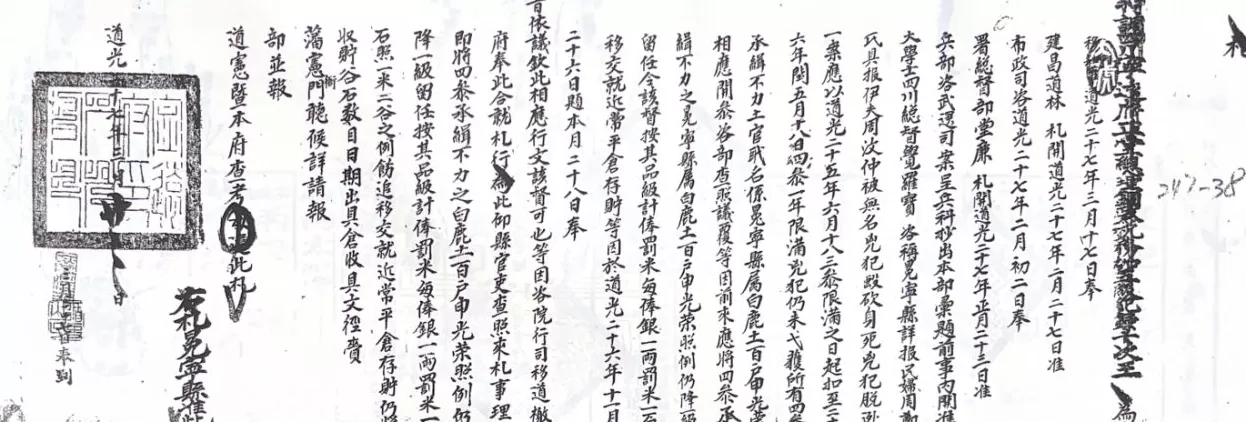 札
為
道光二十七年三月十七日奉
建昌道林 札開道光二十七年二月二十七日准
布政司咨道光二十七年二月初二日奉
署總督部堂廉 札開道光二十七年正月二十三日准
兵部咨武選司案呈兵科抄出本部彙題前事內開准
大學士四川總督覺羅寶 咨稱冕寧縣詳報民婦周鄭
氏具報伊夫周汶仲被無名兇犯毆砍身死兇犯脫
一案應以道光二十五年六月十八三參限滿之日起扣至二十
六年閏五月十八日四參一年限滿兇犯仍未弋獲所有四參
承緝不力土官職名係冕寧縣屬白鹿土百戶申光榮
相應開參咨部查照議覆等因前來應將四參承
緝不力之冕寧縣屬白鹿土百戶申光榮照例仍降
留任令該督按其品級計俸罰米每俸銀一兩罰米一石
移交就近常平倉存貯等因於道光二十六年十一月
二十六日題本月二十八日奉
旨依議欽此相應行文該督可也等因咨院行司移道檄
府奉此合就札行為此仰縣官吏查照來札事理
即將四參承緝不力之白鹿土百戶申光榮照例仍
降一級留任按其品級計俸罰米每俸銀一兩罰米一
石照一米二谷之例飭追移交就近常平倉存貯仍將
收貯谷石數目日期出具倉收具文徑賫
藩憲衙門聽候詳請報
部並報
道憲暨本府查考毋違此札
右札冕寧縣准此
道光二十七年三月廿二日
來到
247-38